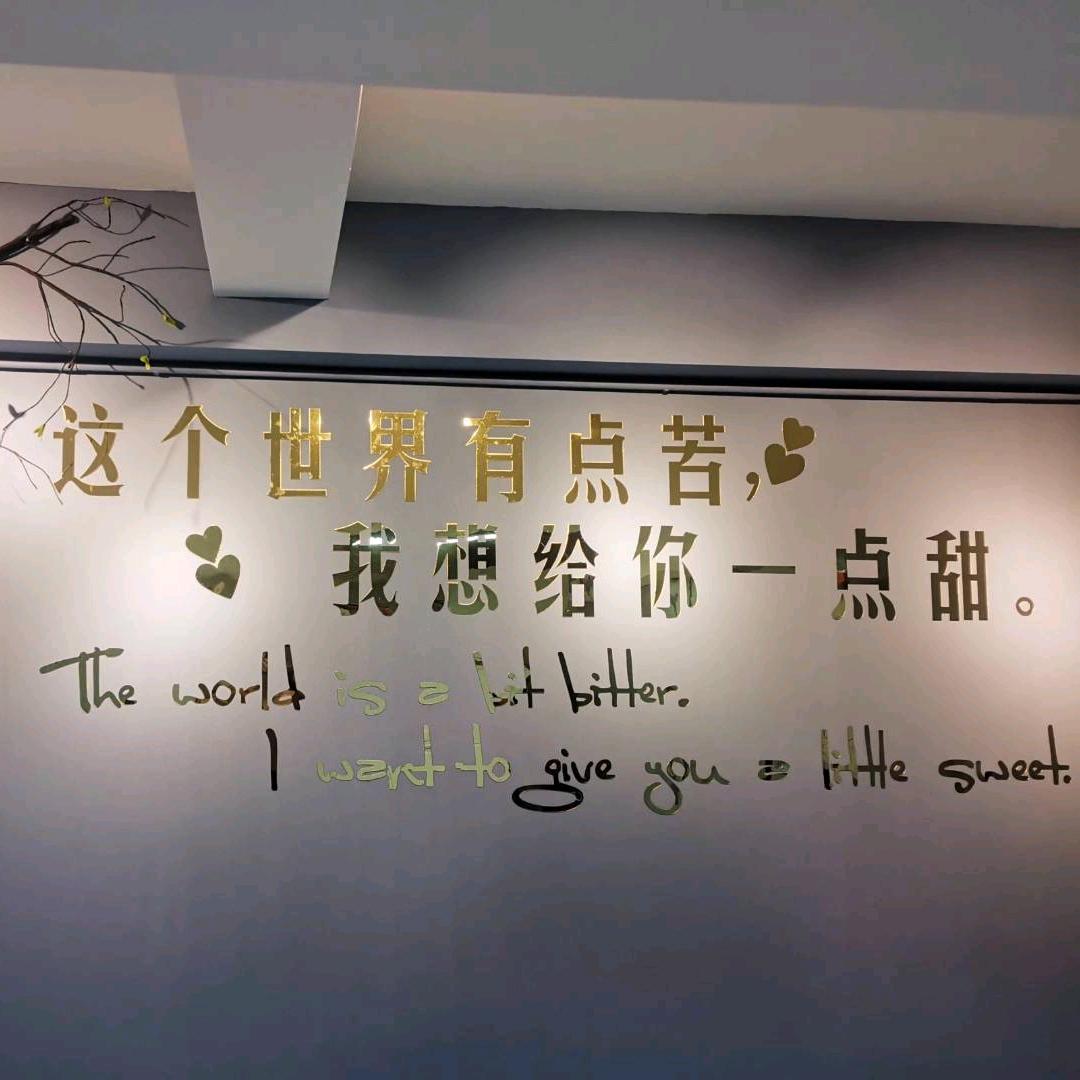 这个世界有点苦,
我想给你一点甜。
The world is a bit bitter.
I want to give you a little sweet.